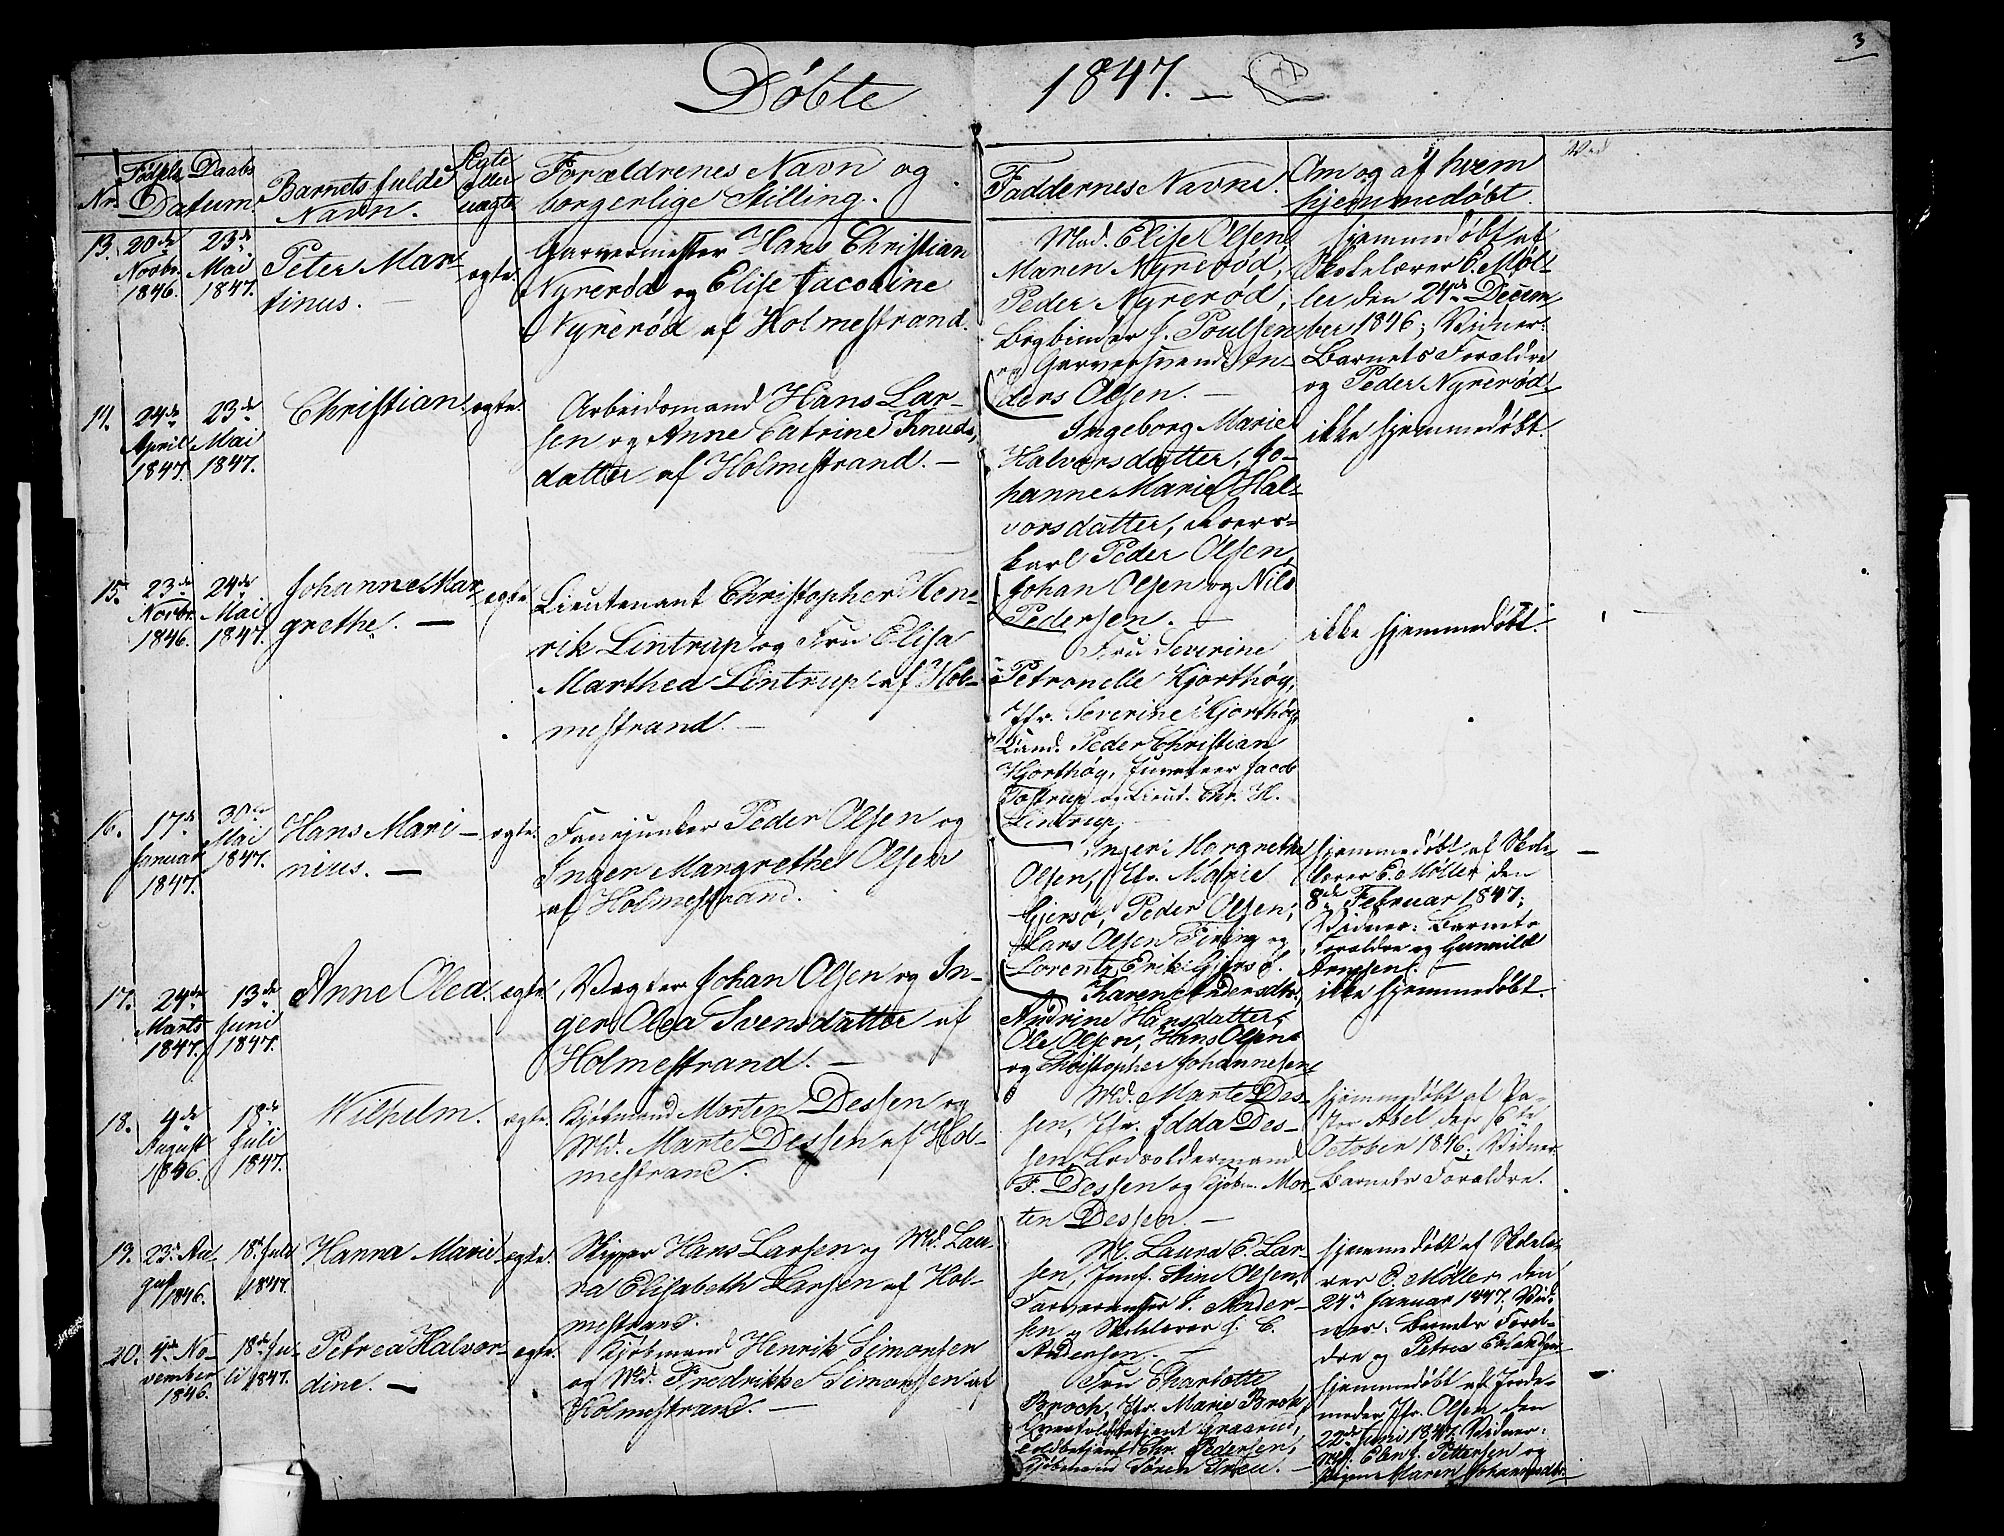 3
Döbte 1847. —
Nr.
Födsels Daabs
Datum.
Barnets fulde
Navn.
Ægte
eller
uægte
Forældrenes Navn og
borgerlige Stilling.
Faddernes Navne.
Om og af hvem
hjemmedöbt.
13.
20de
Novbr.
1846.
23de
Mai
1847.
Peter Mar-
tinus. —
ægte.
Garvermester Hans Christian
Nyreröd og Elise Jacobine
Nyreröd af Holmestrand.
Mad. Elise Olsen,
Maren Nyreröd,
Peder Nyreröd,
Bogbinder J. Poulsen
og Garversvend An-
ders Olsen. —
Hjemmedöbt af
Skolelærer E. Möl-
ler den 24de Decem-
ber 1846; Vidner:
Barnets Forældre
og Peder Nyreröd.
14.
24de
April
1847.
23de
Mai
1847.
Christian.
ægte.
Arbeidsmand Hans Lar-
sen og Anne Catrine Knuds-
datter af Holmestrand. —
Ingeborg Marie
Halvorsdatter, Jo-
hanne Marie Hal-
vorsdatter,
karl Peder Olsen,
Johan Olsen og Nils
Pedersen. —
ikke hjemmedöbt.
15.
23de
Novbr.
1846.
24de
Mai
1847.
Johanne Mar-
grethe. —
ægte.
Lieutenant Christopher Hen-
rik Lintrup og Fru Elisa
Marthea Lintrup af Hol-
mestrand. —
Fru Severine
Petronelle Hjorthöy,
Jfr. Severine Hjorthöy,
Lieud. Peder Christian
Hjorthöy, Jacob
Tostrup og Lieud. Chr. H.
Lintrup.
ikke hjemmedöbt.
16.
17de
Januar
1847.
30te
Mai
1847.
Hans Mari-
nius. —
ægte.
Fanejunker Peder Olsen og
Inger Margrethe Olsen
af Holmestrand.
Ingeri Margrethe
Olsen, Jfr. Marie
Gjersö, Peder Olsen,
Lars Olsen og
Lorentz Erik Gjersö.
hjemmedöbt af Skole-
lærer E. Möller den
8de Februar 1847;
Vidner: Barnets
Forældre og Gunnild
Arnesen. —
17.
24de
Marts
1847.
13de
Juni
1847.
Anne Olea.
ægte.
Vægter Johan Olsen og In-
ger Olea Svensdatter af
Holmestrand. —
Karen Andersdtr.,
Andrine Hansdatter,
Ole Olsen, Hans Olsen
og Christopher Johannesen
ikke hjemmedöbt.
18.
4de
August
1846.
18de
Juli
1847.
Wilhelm.
ægte.
Kjöbmand Morten Dessen og
Md. Marte Dessen af Hol-
mestrand.
Md. Marte Des-
sen, Jfr. Idda Des-
sen, Lodsoldermand
F. Dessen og Kjöbm. Mor-
ten Dessen. —
hjemmedöbt af Pa-
stor Abel den 6te
October 1846; Vidner:
Barnets Forældre.
19.
23de Au-
gust 1846.
18de Juli
1847.
Hanna Marie
ægte.
Skipper Hans Larsen og Md. Lau-
ra Elisabeth Larsen af Hol-
mestrand.
M. Laura E. Lar-
sen, Jomf. Stine Olsen,
Farvermester L. Ander-
sen og Skolelærer J. C.
Andersen. —
hjemmedöbt af Skolelæ-
rer E. Möller den
24de Januar 1847; Vid-
ner: Barnets Foræl-
dre og Petrea
20.
4de No-
vember
1846.
18de Ju-
li 1847.
Petrea Halvor-
dine. —
ægte.
Kjöbmand Henrik Simonsen
og Md. Fredrikke Simonsen af
Holmestrand. —
Fru Charlotte
Broch, Jfr. Marie Broch,
Overtoldbetjent
Toldbetjent Chr. Pedersen,
Kjöbmand Sören
hjemmedöbt af Jorde-
moder Jfr. Olsen den
22de Juni 1847; Vidner:
Pettersen og
Maren Johannesdtr.